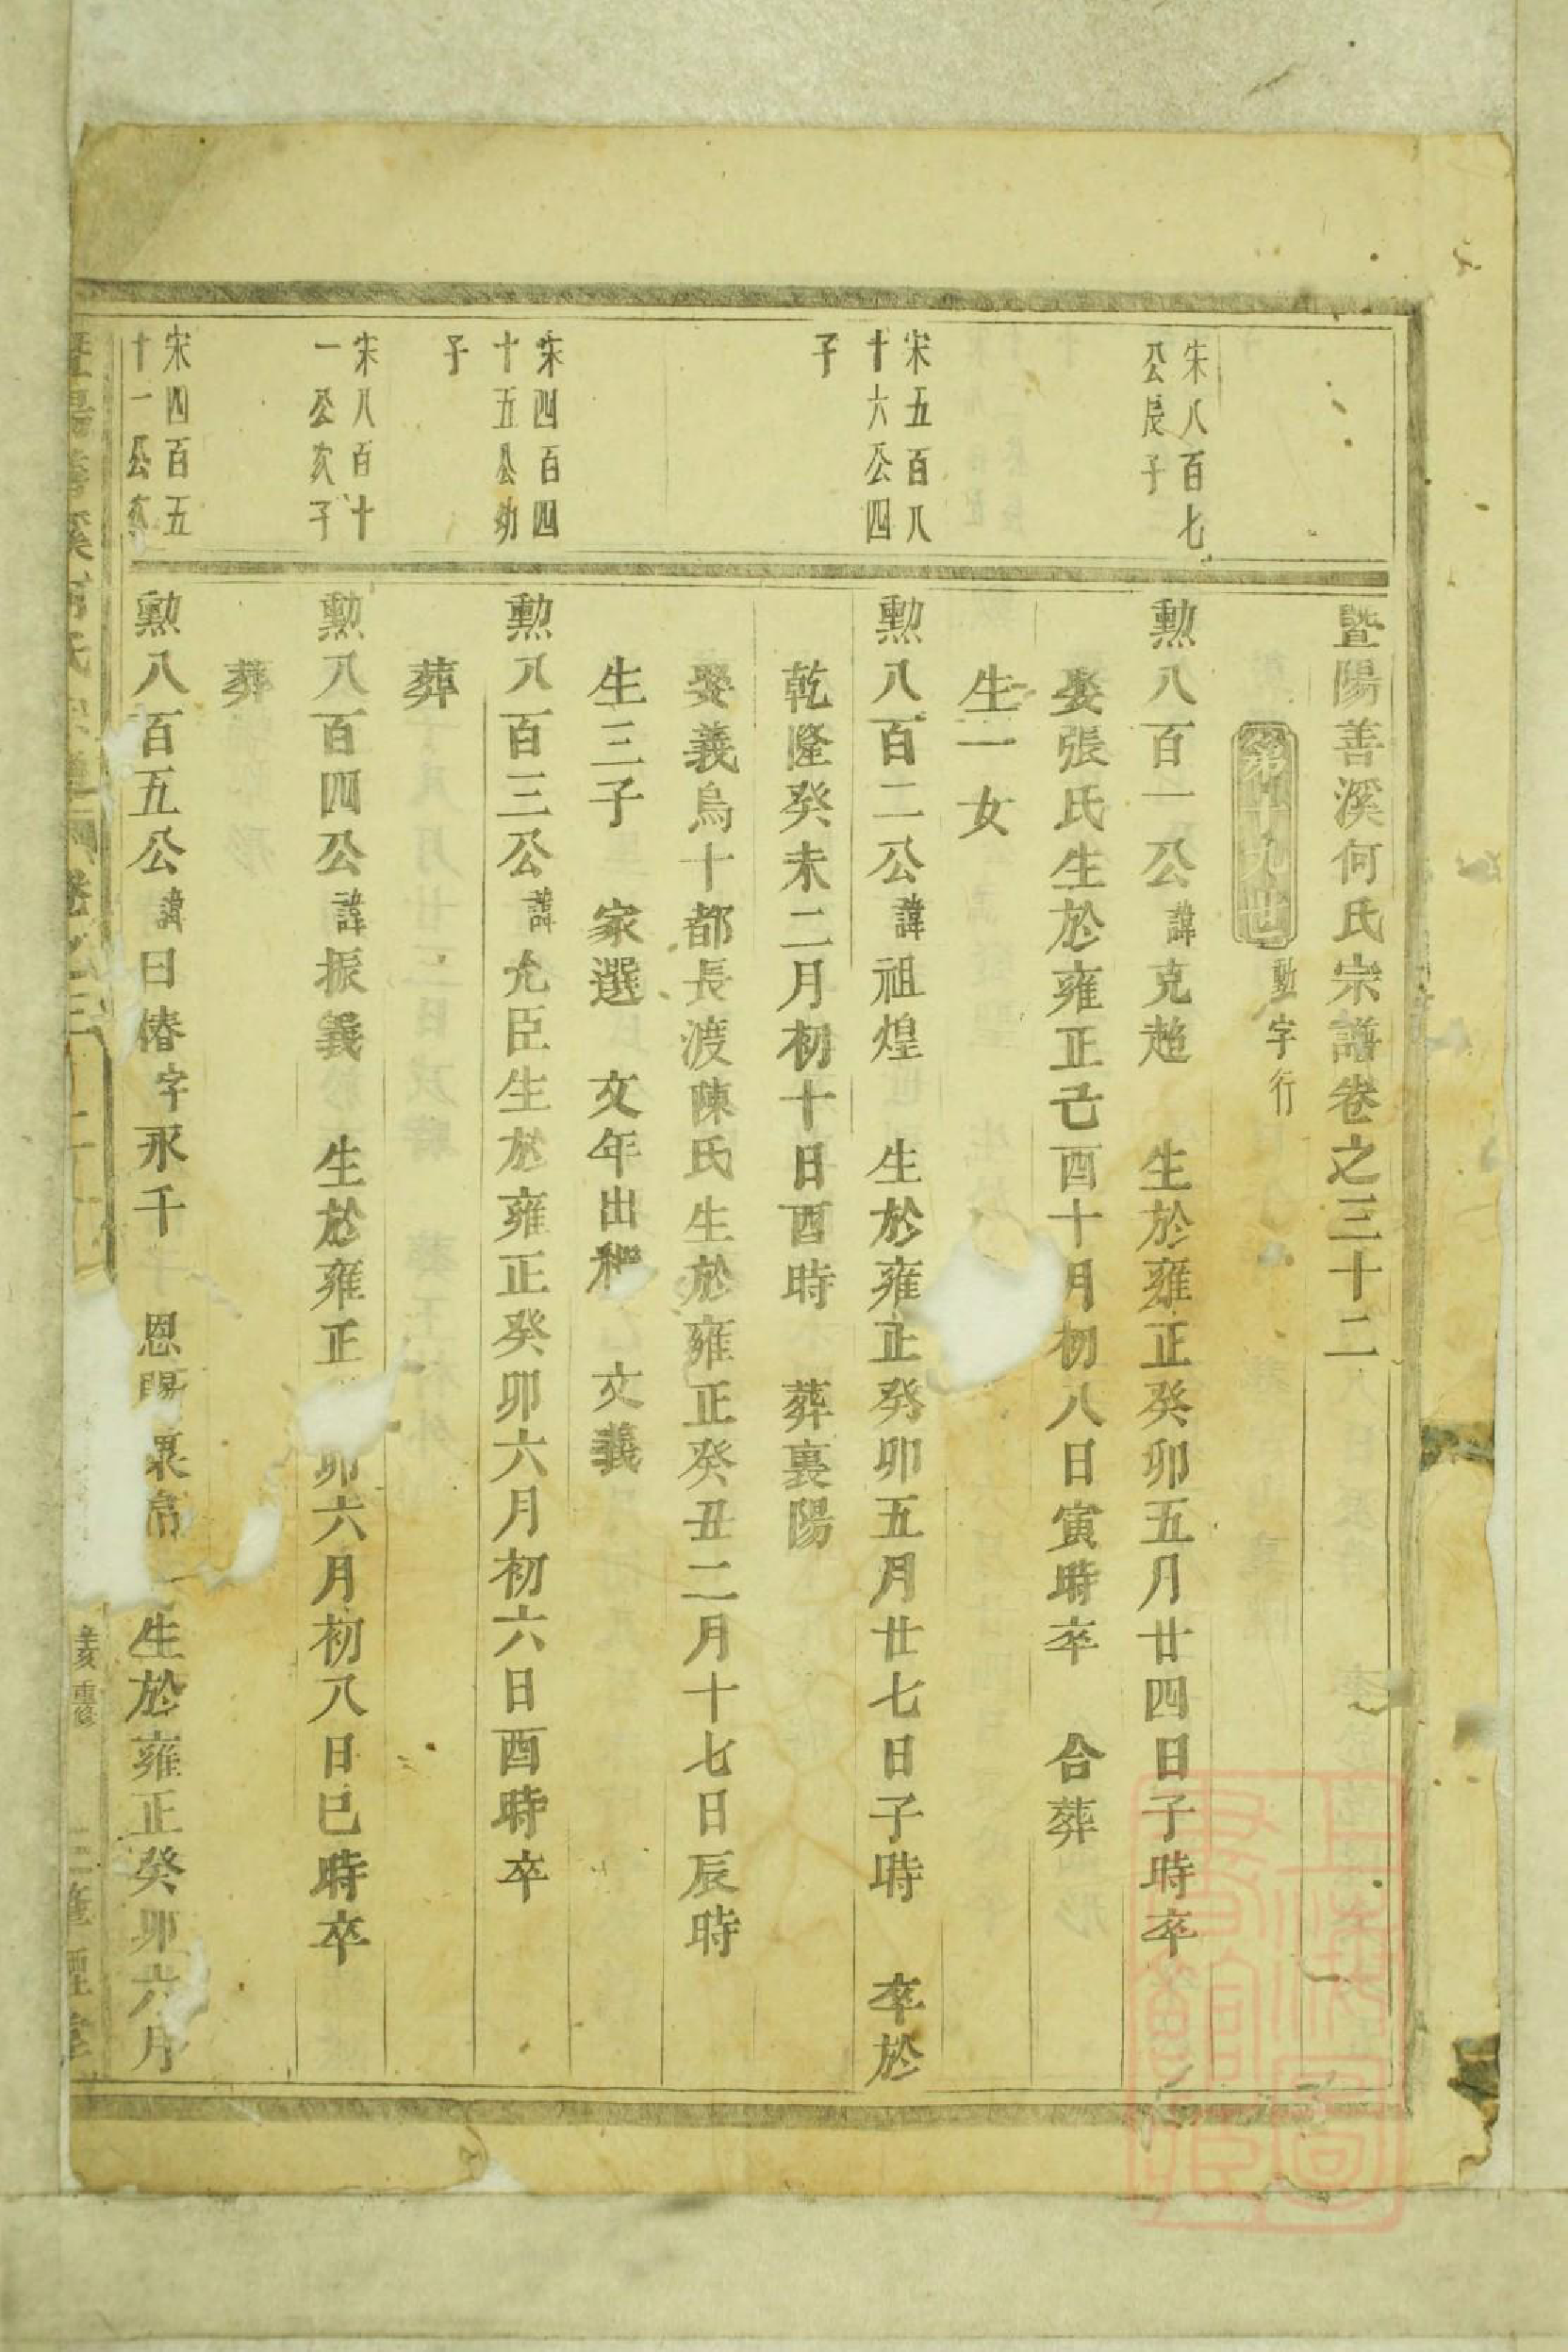 暨陽善溪何氏宗譜卷之三十二
第十九世 勳字行
宋八百七
公長子
勳八百一公諱克趨 生於雍正癸卯五月廿四日子時卒
娶張氏生於雍正己酉十月初八日寅時卒 合葬
生一女
宋五百八
十六公四
子
勳八百二公諱祖煌 生於雍正癸卯五月廿七日子時 卒於
乾隆癸未二月初十日酉時 葬裏陽
娶義烏十都長渡陳氏生於雍正癸丑二月十七日辰時
生三子 家選 文年出繼 文義
宋四百四
十五公幼
子
勳八百三公諱允臣生於雍正癸卯六月初六日酉時卒
葬
宋八百十
一公次子
勳八百四公諱振義 生於雍正 卯六月初八日巳時卒
葬
宋四百五
十一公次
勳八百五公諱曰椿字永千 恩賜 生於雍正癸卯六月
暨陽善溪何氏宗譜 卷之三
辛亥重修